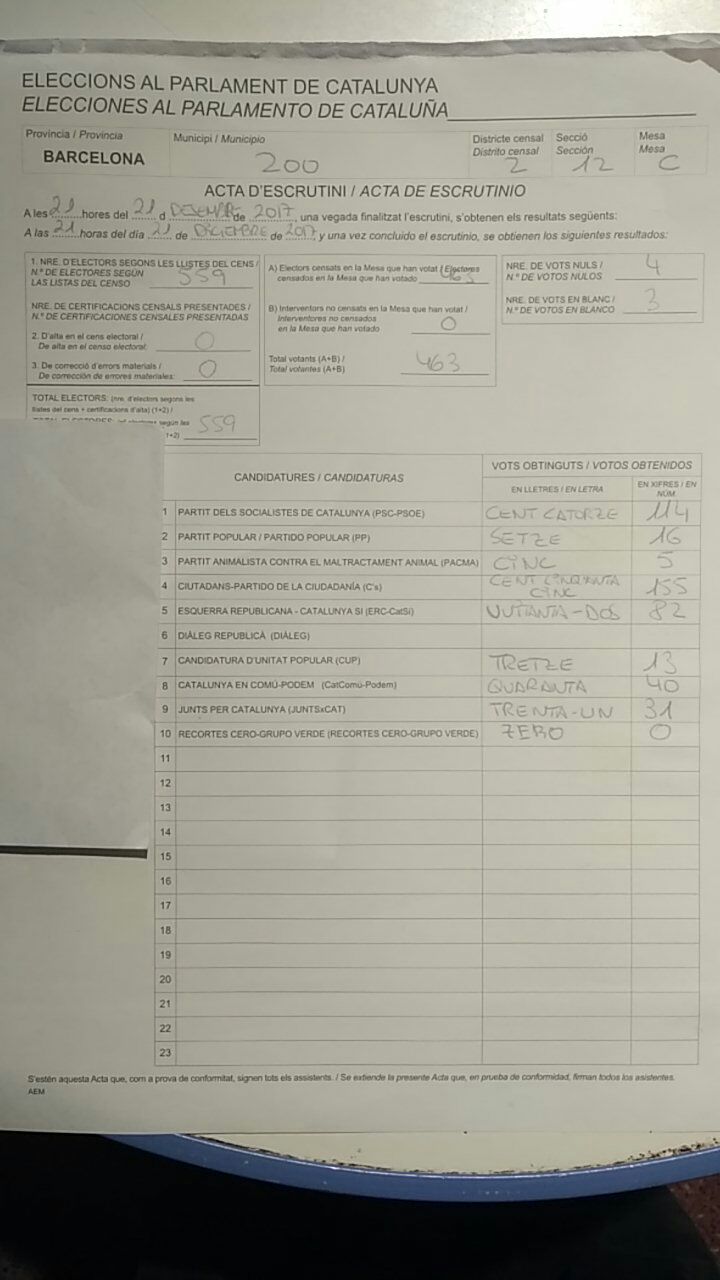 ELECCIONS AL PARLAMENT DE CATALUNYA
ELECCIONES AL PARLAMENTO DE CATALUÑA
Provincia / Provincia
BARCELONA
Municipi / Municipio
200
Districte censal
Distrito censal
2
Secció
Sección
12
Mesa
Mesa
C
ACTA D'ESCRUTINI / ACTA DE ESCRUTINIO
A les 21 hores del 21 d DESEMBRE de 2017, una vegada finalitzat l'escrutini, s'obtenen els resultats següents:
A las 21 horas del día 21 de DICIEMBRE de 2017, y una vez concluido el escrutinio, se obtienen los siguientes resultados:
1. NRE. D'ELECTORS SEGONS LES LLISTES DEL CENS /
N.º DE ELECTORES SEGÚN
LAS LISTAS DEL CENSO 559
NRE. DE CERTIFICACIONS CENSALS PRESENTADES /
N.º DE CERTIFICACIONES CENSALES PRESENTADAS
2. D'alta en el cens electoral /
De alta en el censo electoral: 0
3. De correcció d'errors materials /
De corrección de errores materiales: 0
TOTAL ELECTORS: (nre. d'electors segons les
llistes del cens + certificacions d'alta) (1+2) /
según las
1+2) 559
A) Electors censats en la Mesa que han votat / Electores
censados en la Mesa que han votado 463
B) Interventors no censats en la Mesa que han votat /
Interventores no censados
en la Mesa que han votado 0
Total votants (A+B) /
Total votantes (A+B) 463
NRE. DE VOTS NULS /
N.º DE VOTOS NULOS 4
NRE. DE VOTS EN BLANC /
N.º DE VOTOS EN BLANCO 3
CANDIDATURES / CANDIDATURAS
VOTS OBTINGUTS / VOTOS OBTENIDOS
EN LLETRES / EN LETRA
EN XIFRES / EN
NÚM.
1 PARTIT DELS SOCIALISTES DE CATALUNYA (PSC-PSOE) CENT CATORZE 114
2 PARTIT POPULAR / PARTIDO POPULAR (PP) SETZE 16
3 PARTIT ANIMALISTA CONTRA EL MALTRACTAMENT ANIMAL (PACMA) CINC 5
4 CIUTADANS-PARTIDO DE LA CIUDADANÍA (C's) CENT CINQUANTA CINC 155
5 ESQUERRA REPUBLICANA - CATALUNYA SI (ERC-CatSí) VUITANTA-DOS 82
6 DIÀLEG REPUBLICÀ (DIÀLEG)
7 CANDIDATURA D'UNITAT POPULAR (CUP) TRETZE 13
8 CATALUNYA EN COMÚ-PODEM (CatComú-Podem) QUARANTA 40
9 JUNTS PER CATALUNYA (JUNTSxCAT) TRENTA-UN 31
10 RECORTES CERO-GRUPO VERDE (RECORTES CERO-GRUPO VERDE) ZERO 0
11
12
13
14
15
16
17
18
19
20
21
22
23
S'estén aquesta Acta que, com a prova de conformitat, signen tots els assistents. / Se extiende la presente Acta que, en prueba de conformidad, firman todos los asistentes.
AEM